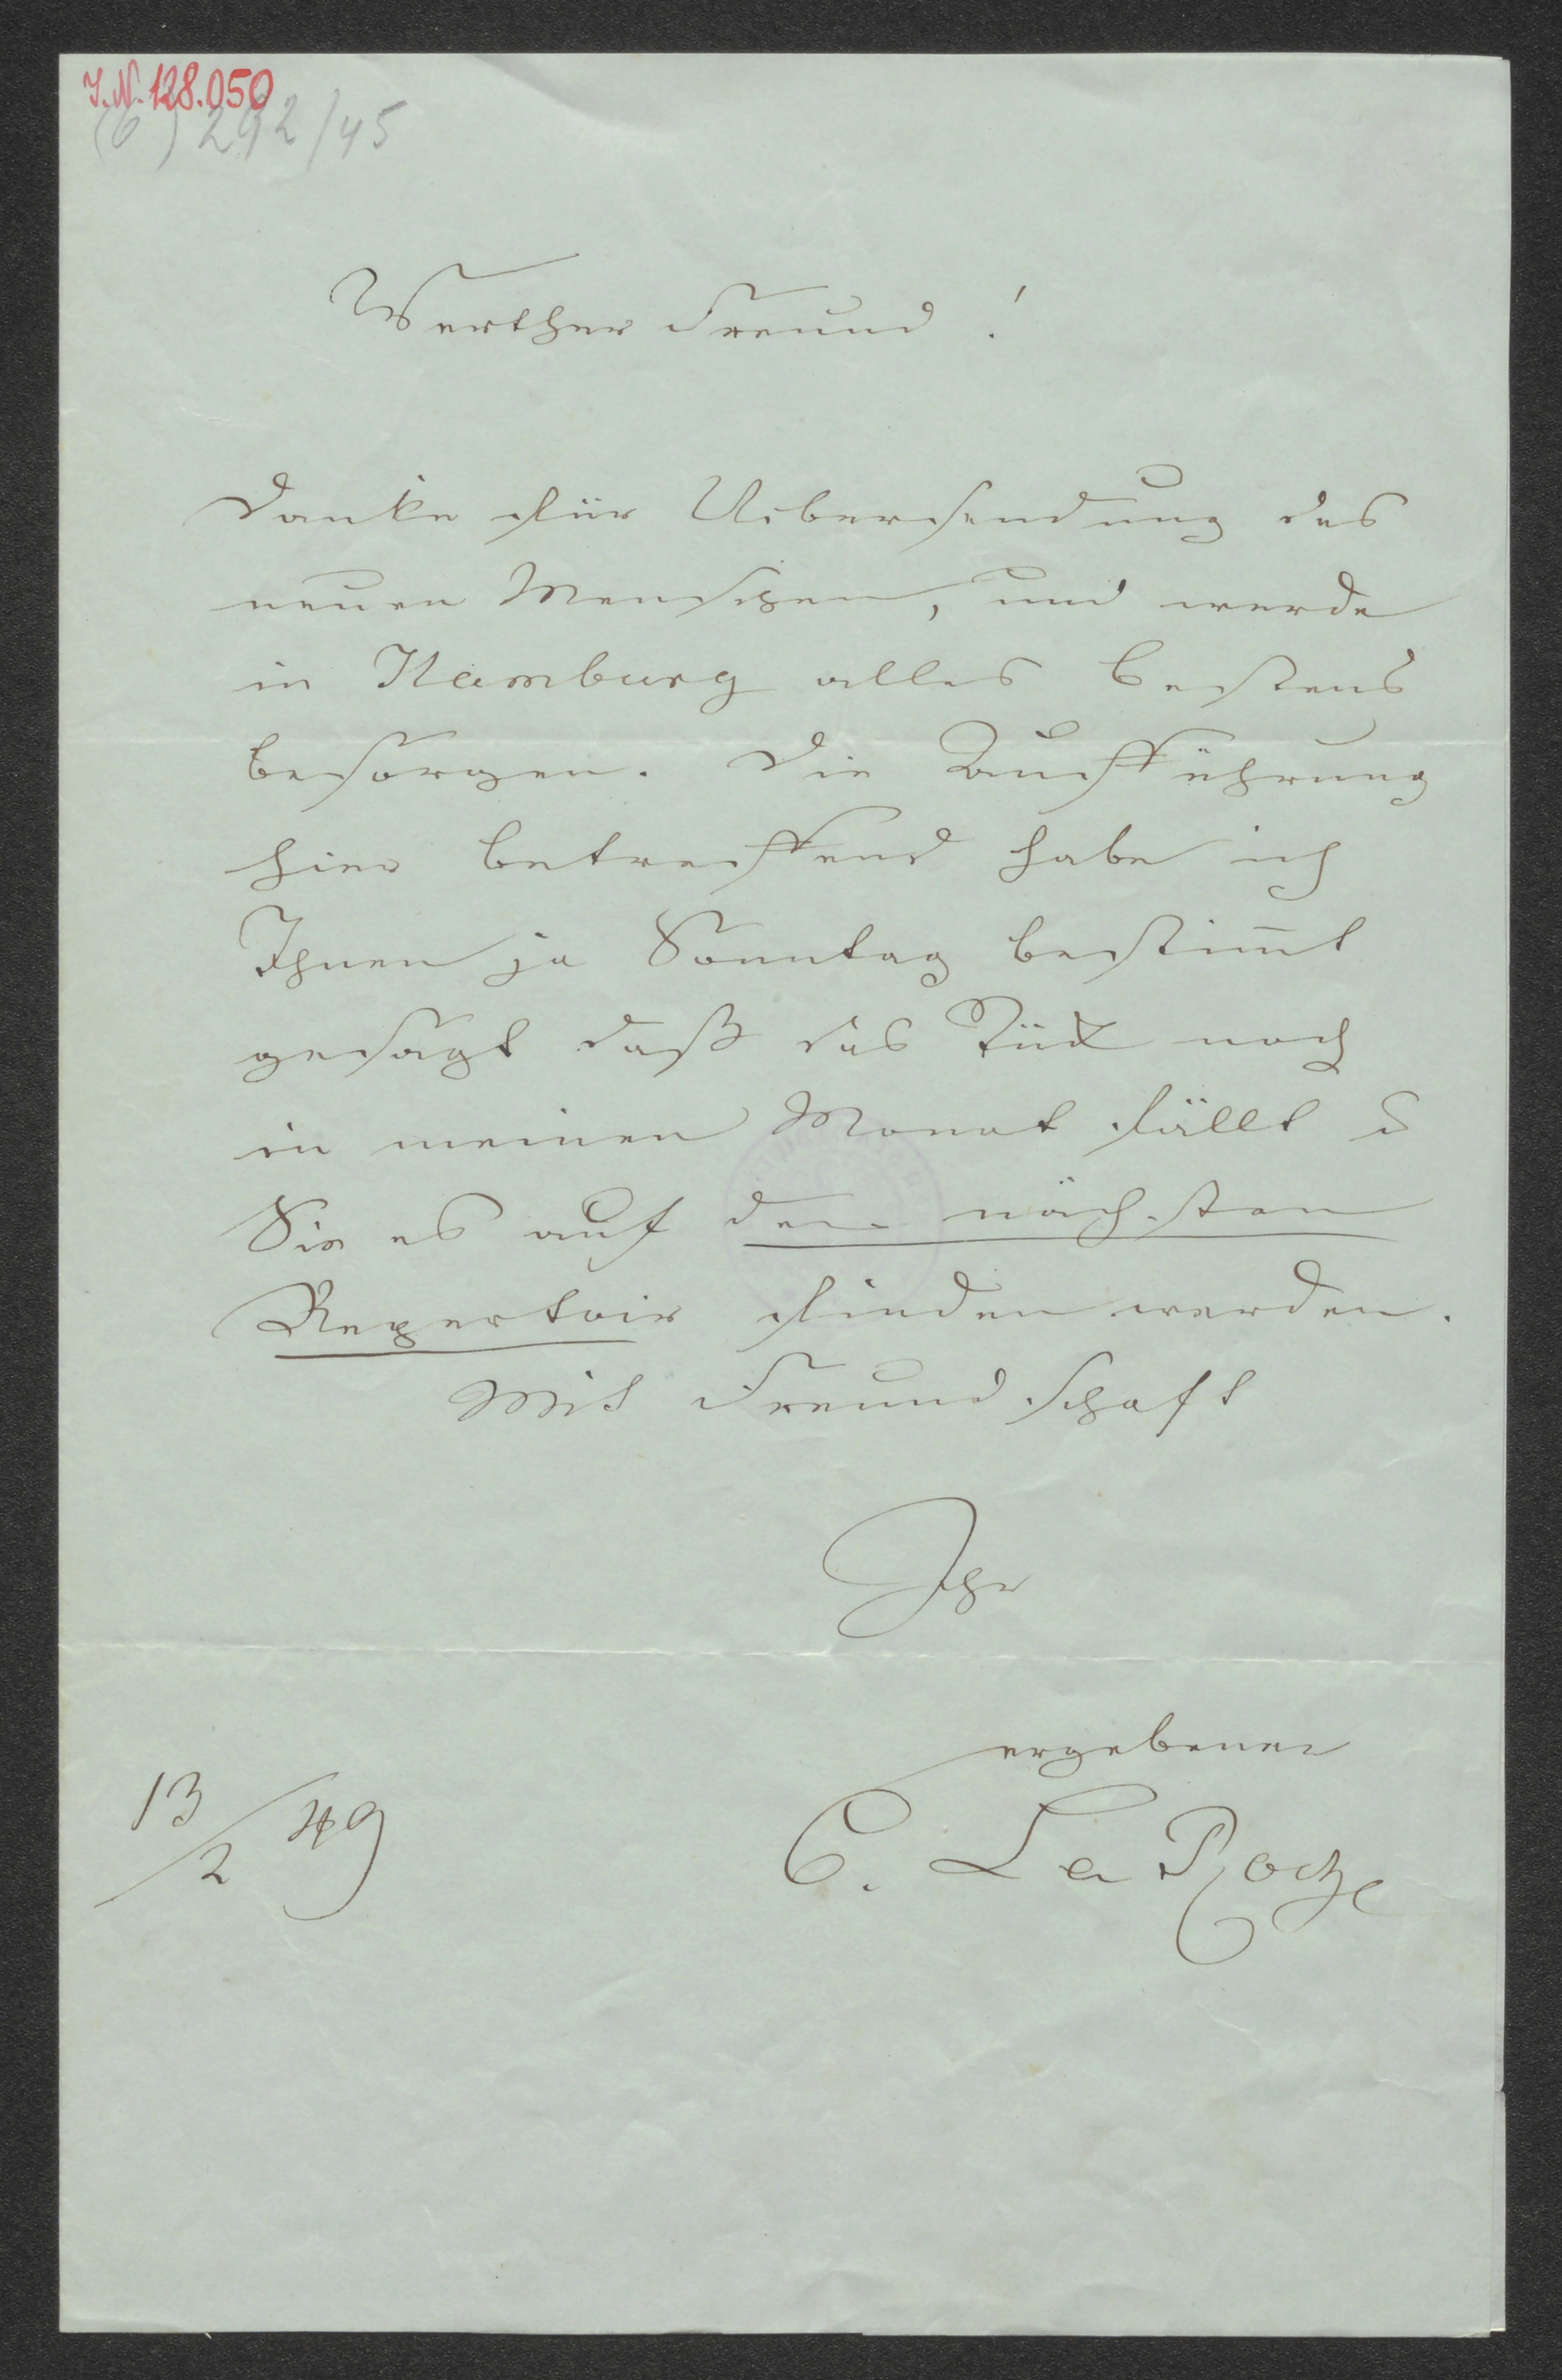 J.N. 128.050
(6) 292/45
Werther Freund!
Danke für Uebersendung des
neuen Menschen, und werde
in Hamburg alles bestens
besorgen. Die Aufführung
hier betreffend habe ich
Ihnen ja Sonntag bestim̅t
gesagt daß das Stück noch
in meinen Monat fällt u
Sie es auf dem nächsten
Repertoir finden werden.
Mit Freundschaft
Ihr
ergebener
C. La Roche
13/2 49